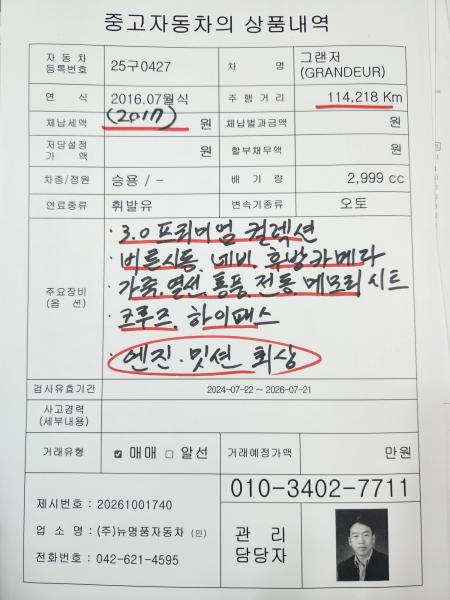 중고자동차의 상품내역
자 동 차 등록번호 25구0427 차 명 그랜저 (GRANDEUR)
연 식 2016.07월식 주 행 거 리 114,218 Km
체납세액 (2017) 원 체납벌과금액 원
저당설정 가 액 원 할부채무액 원
차종/정원 승용 / - 배 기 량 2,999 cc
연료종류 휘발유 변속기종류 오토
주요장비 (옵 션)
· 3.0 프리미엄 컬렉션
· 버튼시동. 네비. 후방카메라
가죽. 열선. 통풍. 전동. 메모리시트
· 크루즈. 하이패스
· 엔진 · 밋션 최상
검사유효기간 2024-07-22 ~ 2026-07-21
사고경력 (세부내용)
거래유형 ☑ 매매 □ 알선 거래예정가액 만원
010-3402-7711
제시번호 : 20261001740
업 소 명 : (주)뉴명품자동차 (인)
전화번호 : 042-621-4595
관 리
담당자